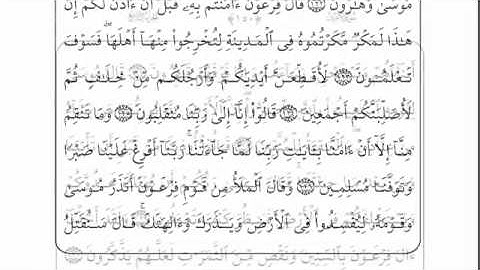 مُوسَىٰ وَهَٰرُونَ ١٢٢ قَالَ فِرْعَوْنُ ءَامَنتُم بِهِۦ قَبْلَ أَنْ ءَاذَنَ لَكُمْ إِنَّ
هَٰذَا لَمَكْرٌ مَّكَرْتُمُوهُ فِى ٱلْمَدِينَةِ لِتُخْرِجُوا۟ مِنْهَآ أَهْلَهَا فَسَوْفَ
تَعْلَمُونَ ١٢٣ لَأُقَطِّعَنَّ أَيْدِيَكُمْ وَأَرْجُلَكُم مِّنْ خِلَٰفٍ ثُمَّ
لَأُصَلِّبَنَّكُمْ أَجْمَعِينَ ١٢٤ قَالُوٓا۟ إِنَّآ إِلَىٰ رَبِّنَا مُنقَلِبُونَ ١٢٥ وَمَا تَنقِمُ
مِنَّآ إِلَّآ أَنْ ءَامَنَّا بِـَٔايَٰتِ رَبِّنَا لَمَّا جَآءَتْنَا رَبَّنَآ أَفْرِغْ عَلَيْنَا صَبْرًا
وَتَوَفَّنَا مُسْلِمِينَ ١٢٦ وَقَالَ ٱلْمَلَأُ مِن قَوْمِ فِرْعَوْنَ أَتَذَرُ مُوسَىٰ
وَقَوْمَهُۥ لِيُفْسِدُوا۟ فِى ٱلْأَرْضِ وَيَذَرَكَ وَءَالِهَتَكَ قَالَ سَنُقَتِّلُ
ءَالَ فِرْعَوْنَ بِٱلسِّنِينَ وَنَقْصٍ مِّنَ ٱلثَّمَرَٰتِ لَعَلَّهُمْ يَذَّكَّرُونَ